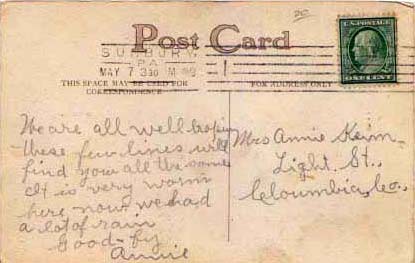 20
Post Card
U.S. POSTAGE
ONE CENT
SUNBURY,
PA.
MAY 7 330 M
1
THIS SPACE MAY BE USED FOR
CORRESPONDENCE
FOR ADDRESS ONLY
We are all well hoping
these few lines will
find you all the same
It is very warm
here now we had
a lot of rain
Good-by
Annie
Mrs Annie Keim
Light St.,
Cloumbia, Co.,